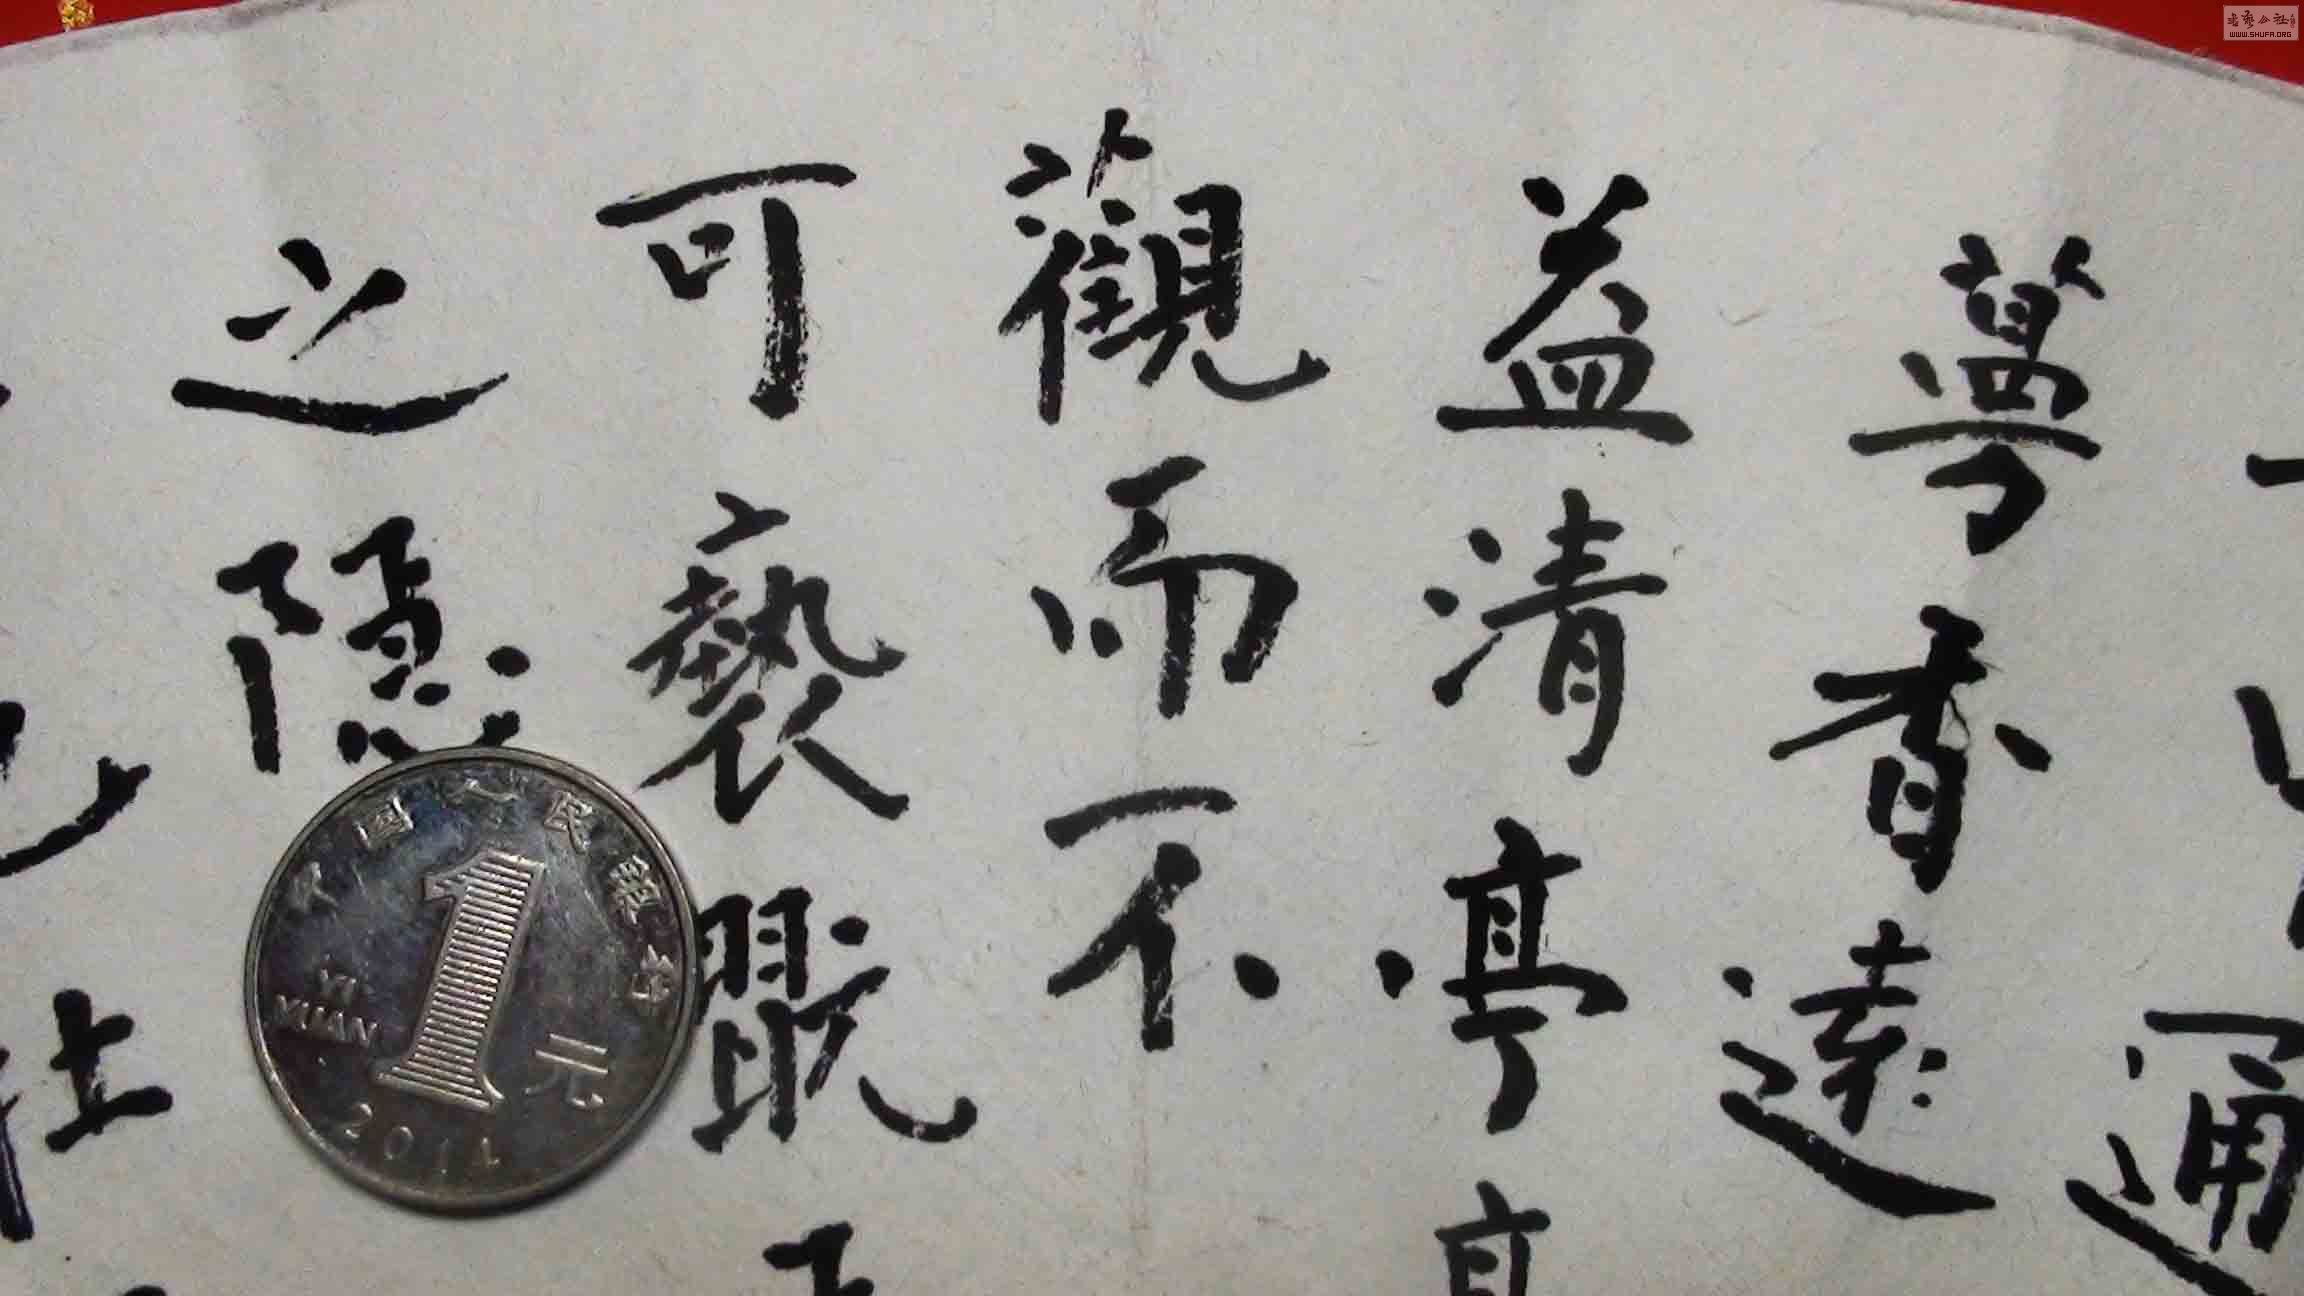 通
蔓香遠
益清亭亭
觀而不
可褻翫
之隱
牡
中国人民银行
YI
YUAN
1元
書藝公社
WWW.SHUFA.ORG